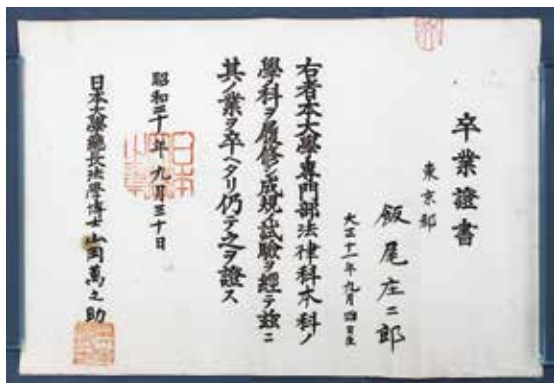 卒業證書
東京都
飯尾庄二郎
大正十一年九月四日生
右者本大學專門部法律科本科ノ
學科ヲ履修シ成規ノ試驗ヲ經テ茲ニ
其ノ業ヲ卒ヘタリ仍テ之ヲ證ス
昭和二十年九月三十日
日本大學總長法學博士山岡萬之助